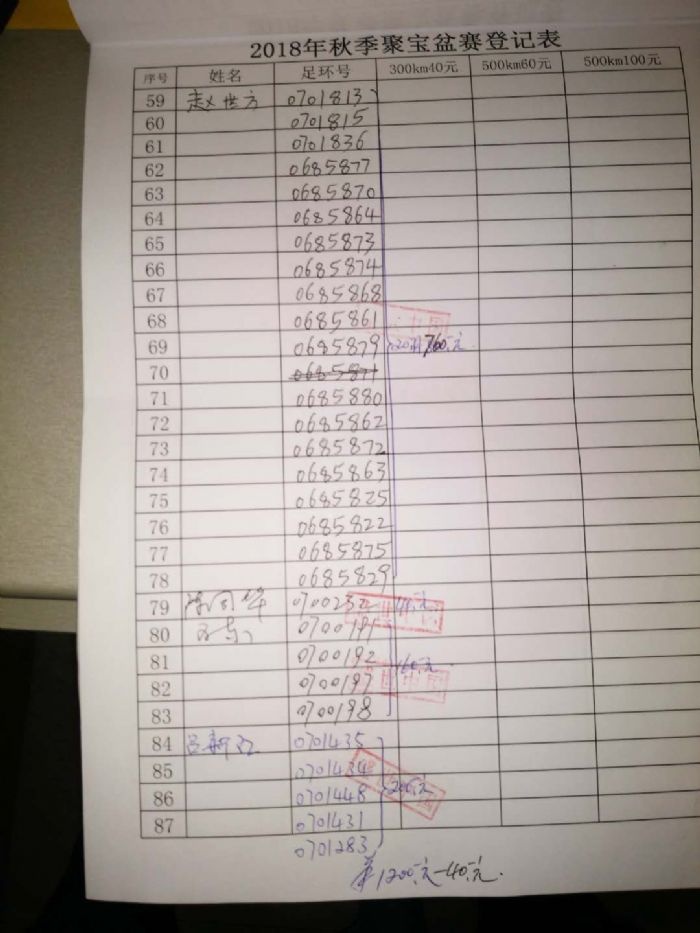 2018年秋季聚宝盆赛登记表
序号 姓名 足环号 300km40元 500km60元 500km100元
59 赵世方 0701813
60 0701815
61 0701836
62 0685877
63 0685870
64 0685864
65 0685873
66 0685874
67 0685868
68 0685861
69 0685879 760元
70 0685871
71 0685880
72 0685862
73 0685872
74 0685863
75 0685825
76 0685822
77 0685875
78 0685829
79 0700232 40元
80 0700191
81 0700192 160元
82 0700197
83 0700198
84 0701435
85 0701434
86 0701448 200元
87 0701431
0701283
1200元-40元.